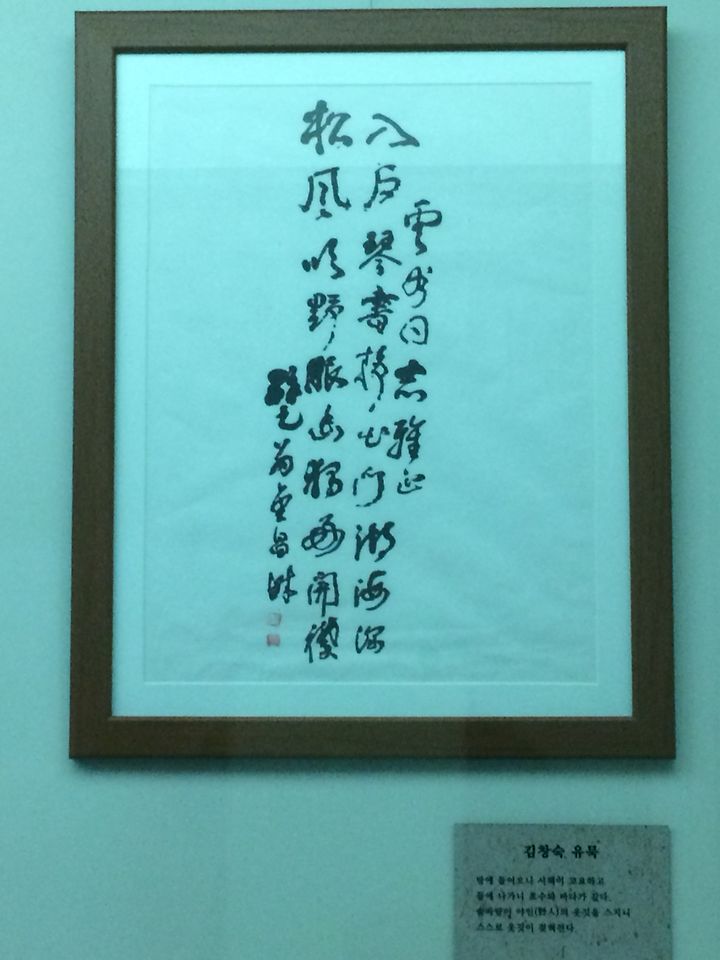 雲同志雅正
入戶琴書靜出門湖海深
松風吹野服幽獨每開襟
躄翁金昌淑
김창숙 유묵
방에 들어오니 서책이 고요하고
들에 나가니 호수와 바다가 깊다.
솔바람이 야인(野人)의 옷깃을 스치니
스스로 옷깃이 젖혀진다.